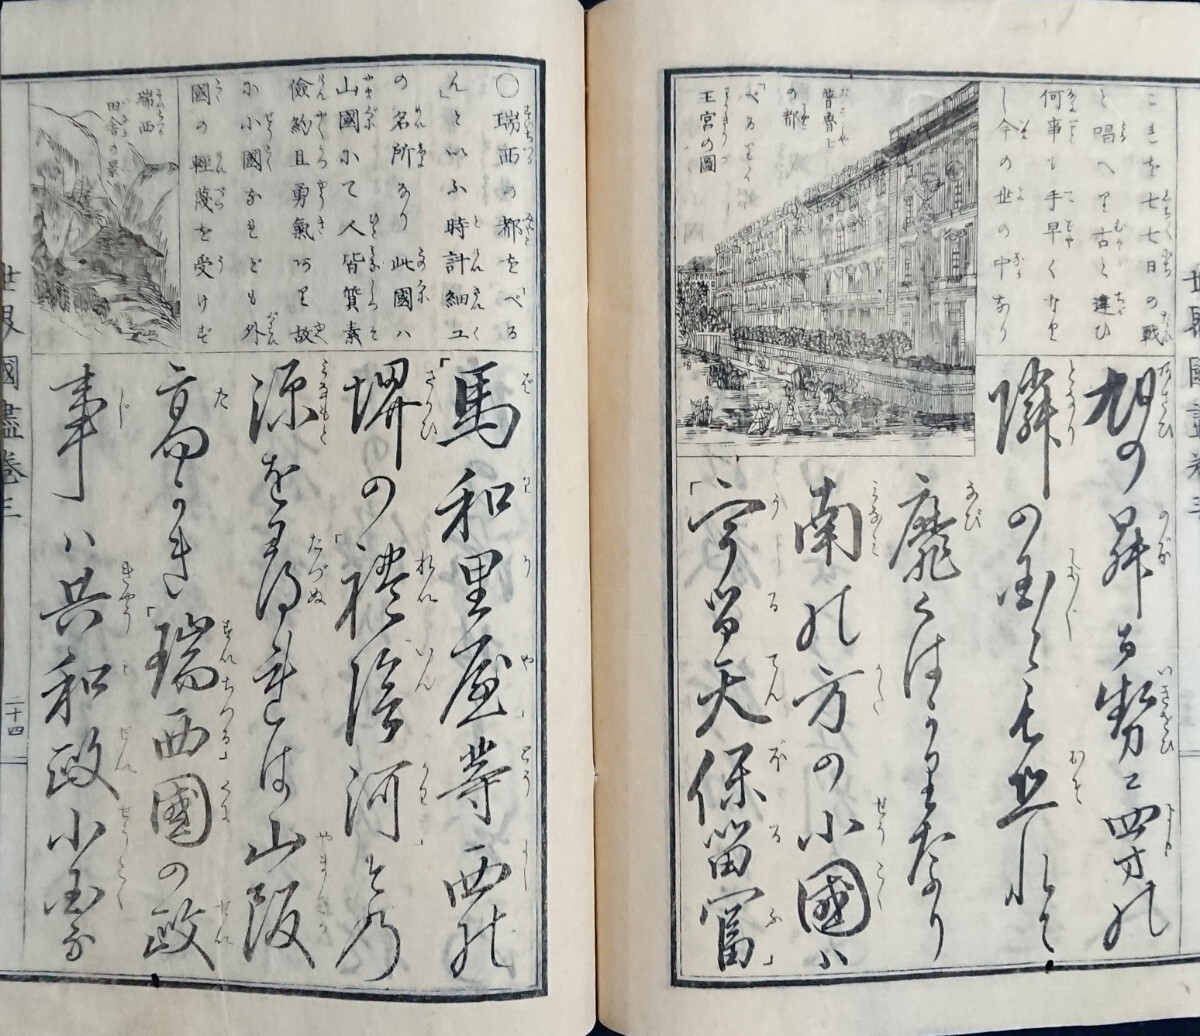 これを七七日の戦
と唱へり古と違ひ
何事も手早く
し今の世の中なり
普魯士
の都
「べるりん」
王宮の圖
旭の昇る勢に四方の
隣の国々も恐れて
靡くはかりなり
南の方の小國ハ
「宇留天保留富」
世界國盡巻三
○瑞西の都を「べる
ん」といふ時計細工
の名所なり此國ハ
山國にて人皆質素
儉約且勇氣あり故
に小國なれども外
國の輕蔑を受けず
瑞西
田舎の景
「馬和里屋」等西の
堺の「禮陰河」その
源を尋れは山阪
高かき「瑞西」國の政
事ハ共和政小国な
世界國盡巻三
二十四